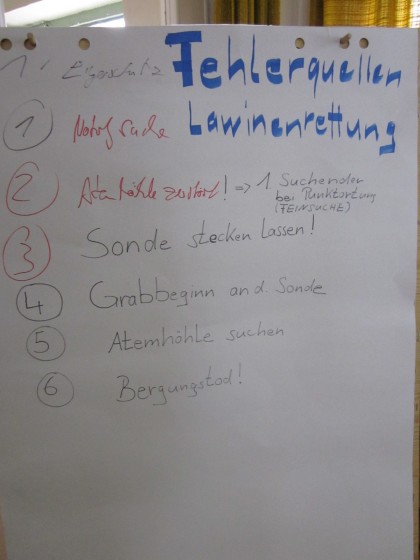 Fehlerquellen
Lawinenrettung
1' Eigenschutz
1 Notruf
2 Atemhöhle zerstört! => 1 Suchender
bei Punktortung
(FEINSUCHE)
3 Sonde stecken lassen!
4 Grabbeginn an d. Sonde
5 Atemhöhle suchen
6 Bergungstod!